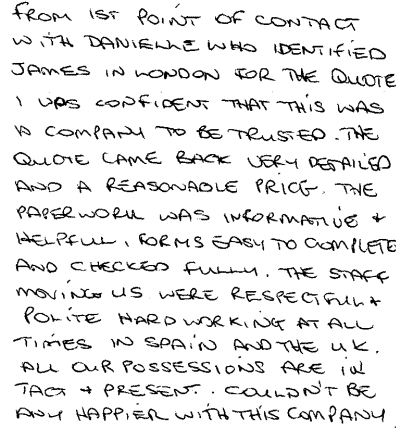 FROM 1ST POINT OF CONTACT
WITH DANIELLE WHO IDENTIFIED
JAMES IN LONDON FOR THE QUOTE
I WAS CONFIDENT THAT THIS WAS
A COMPANY TO BE TRUSTED. THE
QUOTE CAME BACK VERY DETAILED
AND A REASONABLE PRICE. THE
PAPERWORK WAS INFORMATIVE +
HELPFUL, FORMS EASY TO COMPLETE
AND CHECKED FULLY. THE STAFF
MOVING US WERE RESPECTFUL +
POLITE HARD WORKING AT ALL
TIMES IN SPAIN AND THE UK.
ALL OUR POSSESSIONS ARE IN
TACT + PRESENT. COULDN'T BE
ANY HAPPIER WITH THIS COMPANY.